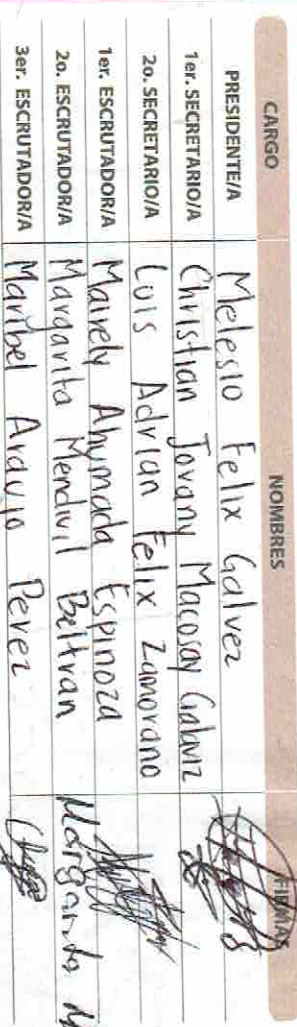 CARGO NOMBRES FIRMAS
PRESIDENTE/A Melesio Felix Galvez
1er. SECRETARIO/A Christian Jovany Macosay Galaviz
2o. SECRETARIO/A Luis Adrian Felix Zamorano
1er. ESCRUTADOR/A Mairely Ahymada Espinoza
2o. ESCRUTADOR/A Margarita Mendivil Beltran Margarita M
3er. ESCRUTADOR/A Maribel Araujo Perez